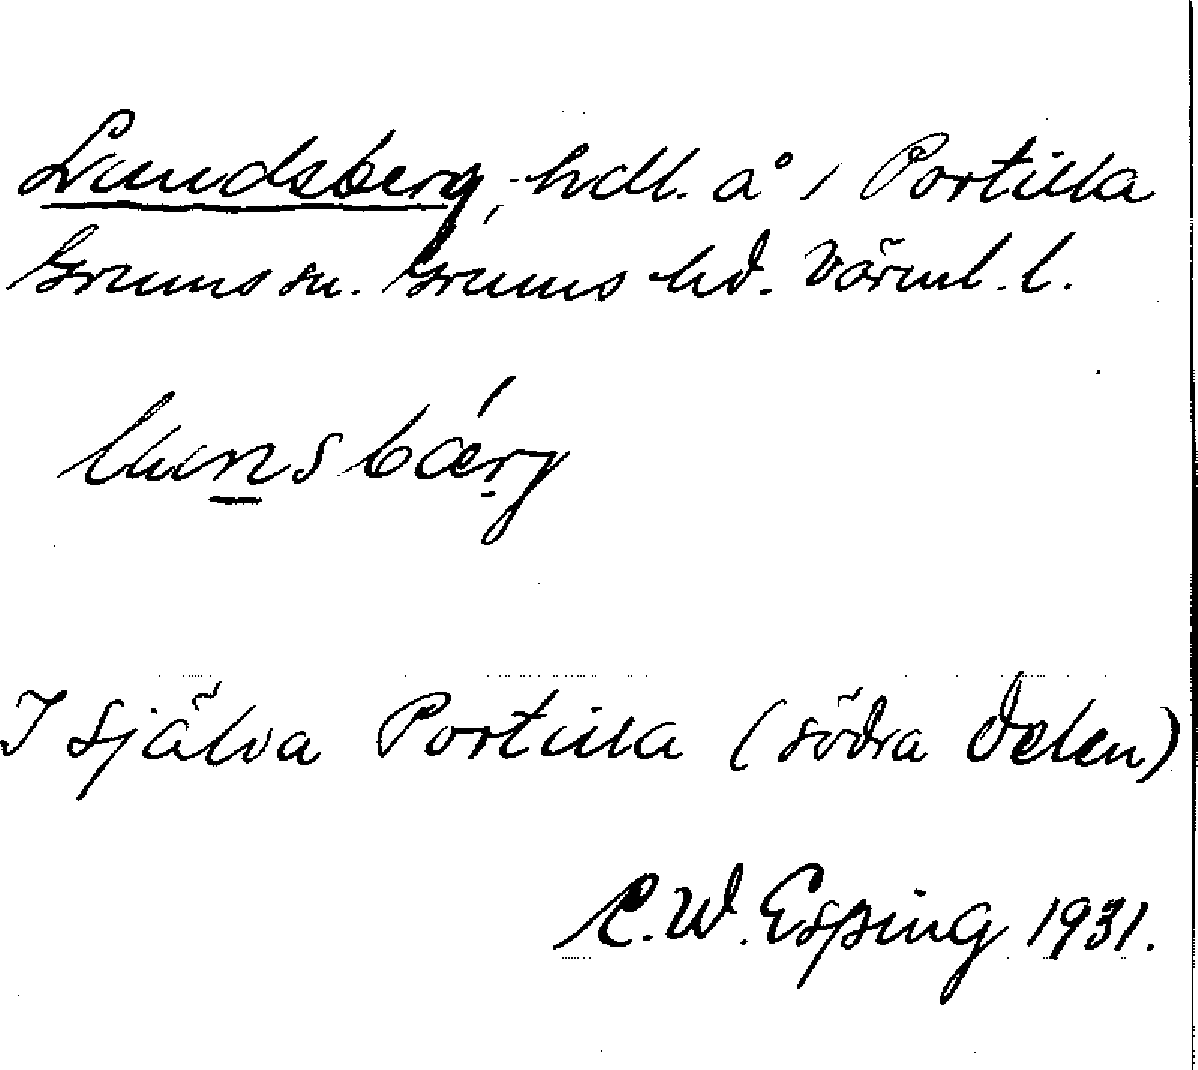 Lundsberg, hdl. å i Portilla
Grums sn. Grums hd. Värml. l.
lunsbärj
I själva Portilla (södra delen)
C. W. Esping 1931.